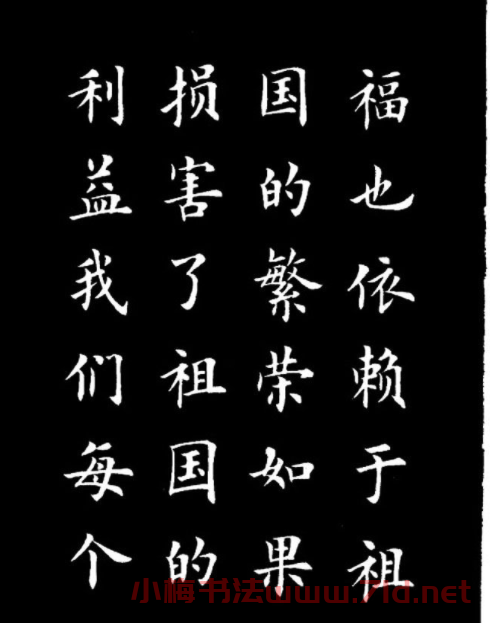 福也依赖于祖
国的繁荣如果
损害了祖国的
利益我们每个
小梅书法www.7ld.net